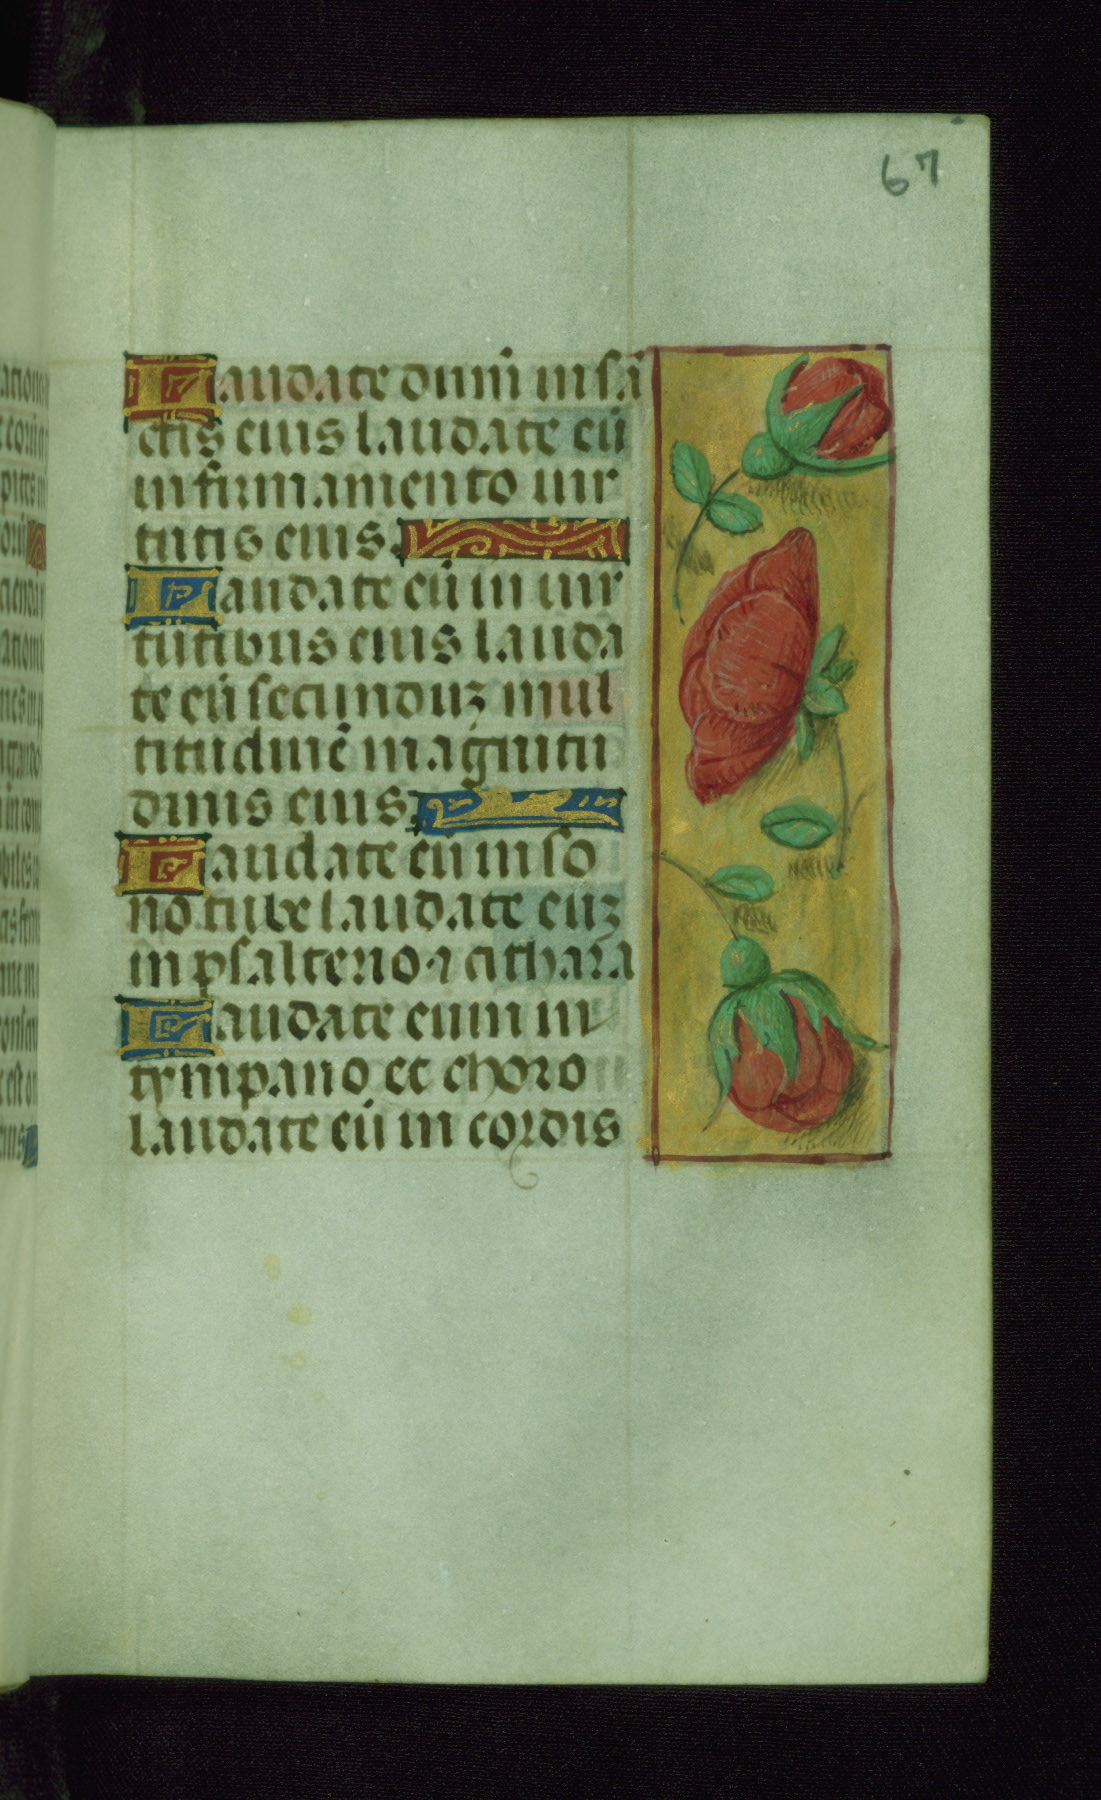 67
Laudate dnm̄ in sā
ctis eius laudate eū
in firmamento uir
tutis eius.
Laudate eū in uir
tutibus eius lauda
te eū secunduz mul
titudinē magnitu
dinis eius.
Laudate eū in so
no tube laudate euz
in psalterio ⁊ cithara
Laudate eum in
tympano et choro
laudate eū in cordis